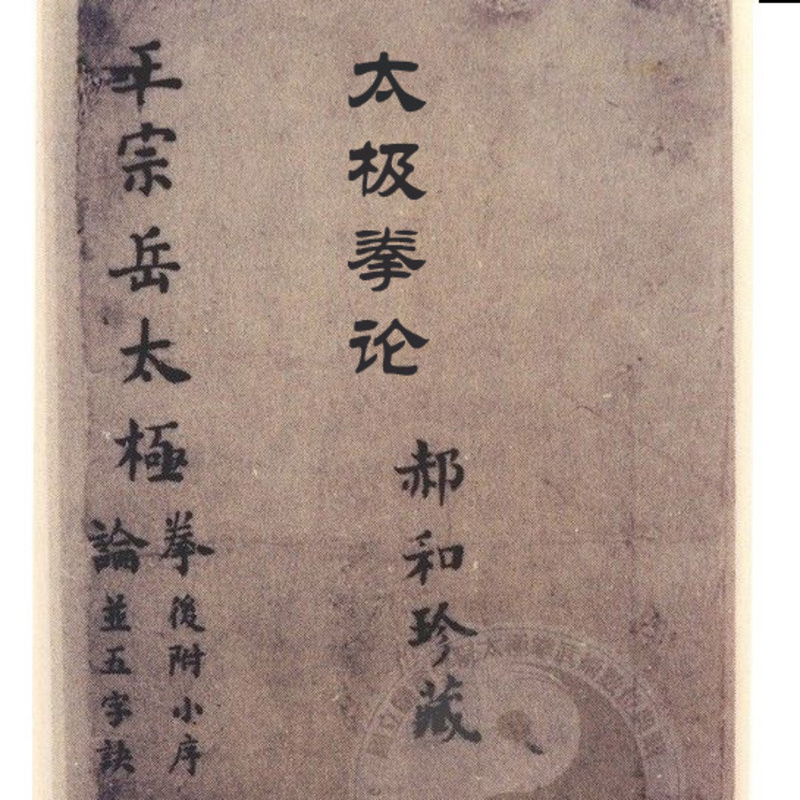 太极拳论
郝和珍藏
平宗岳太極
拳論
後附小序
並五字訣